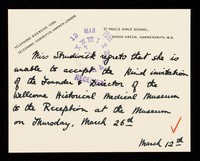 TELEPHONE RIVERSIDE
ST PAUL'S GIRLS' SCHOOL,
BROOK GREEN, HAMMERSMITH, W.6.
13 MAR
Miss Strudwick regrets that she is
unable to accept the kind invitation
of the Founder & Director of the
Wellcome Historical Medical Museum
to the Reception at the Museum
on Thursday, March 26th
March 12th